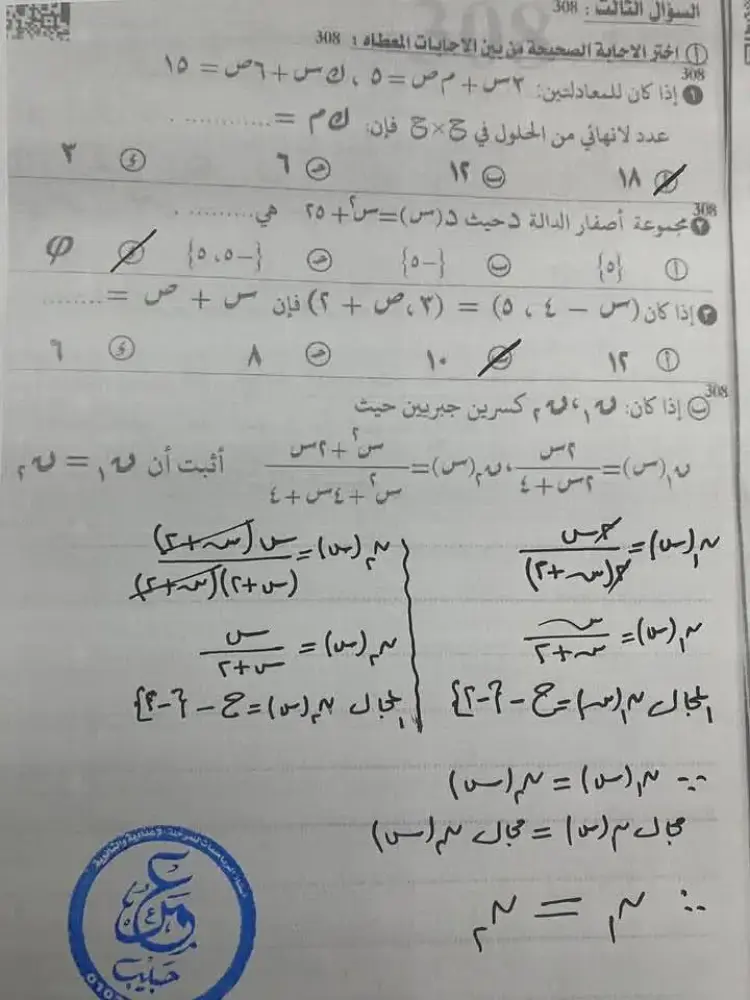 السؤال الثالث : 308
أ اختر الإجابة الصحيحة من بين الاجابات المعطاه : 308
308
١ إذا كان للمعادلتين: ٣س + م ص = ٥ ، ك س + ٦ص = ١٥
عدد لانهائي من الحلول في ح×ح فإن: ك م = ............
أ ١٨ ب ١٢ ج ٦ د ٣
308
٢ مجموعة أصفار الدالة د حيث د(س) = س² + ٢٥ هي ..........
أ {٥} ب {-٥} ج {-٥، ٥} د φ
٣ إذا كان (س - ٤ ، ٥) = (٣ ، ص + ٢) فإن س + ص = ........
أ ١٢ ب ١٠ ج ٨ د ٦
308
ب إذا كان: ن١، ن٢ كسرين جبريين حيث
ن١(س) = ٢س / (٢س + ٤) ، ن٢(س) = (س² + ٢س) / (س² + ٤س + ٤) أثبت أن ن١ = ن٢
ن١(س) = ٢س / ٢(س + ٢)
ن١(س) = س / (س + ٢)
المجال ن١(س) = ح - {-٢}
ن٢(س) = س(س + ٢) / (س + ٢)(س + ٢)
ن٢(س) = س / (س + ٢)
المجال ن٢(س) = ح - {-٢}
∵ ن١(س) = ن٢(س)
مجال ن١(س) = مجال ن٢(س)
∴ ن١ = ن٢
حبيب